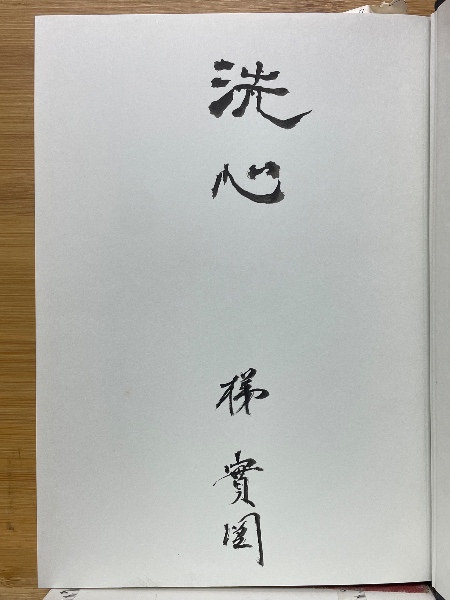 洗心
梯 實圓